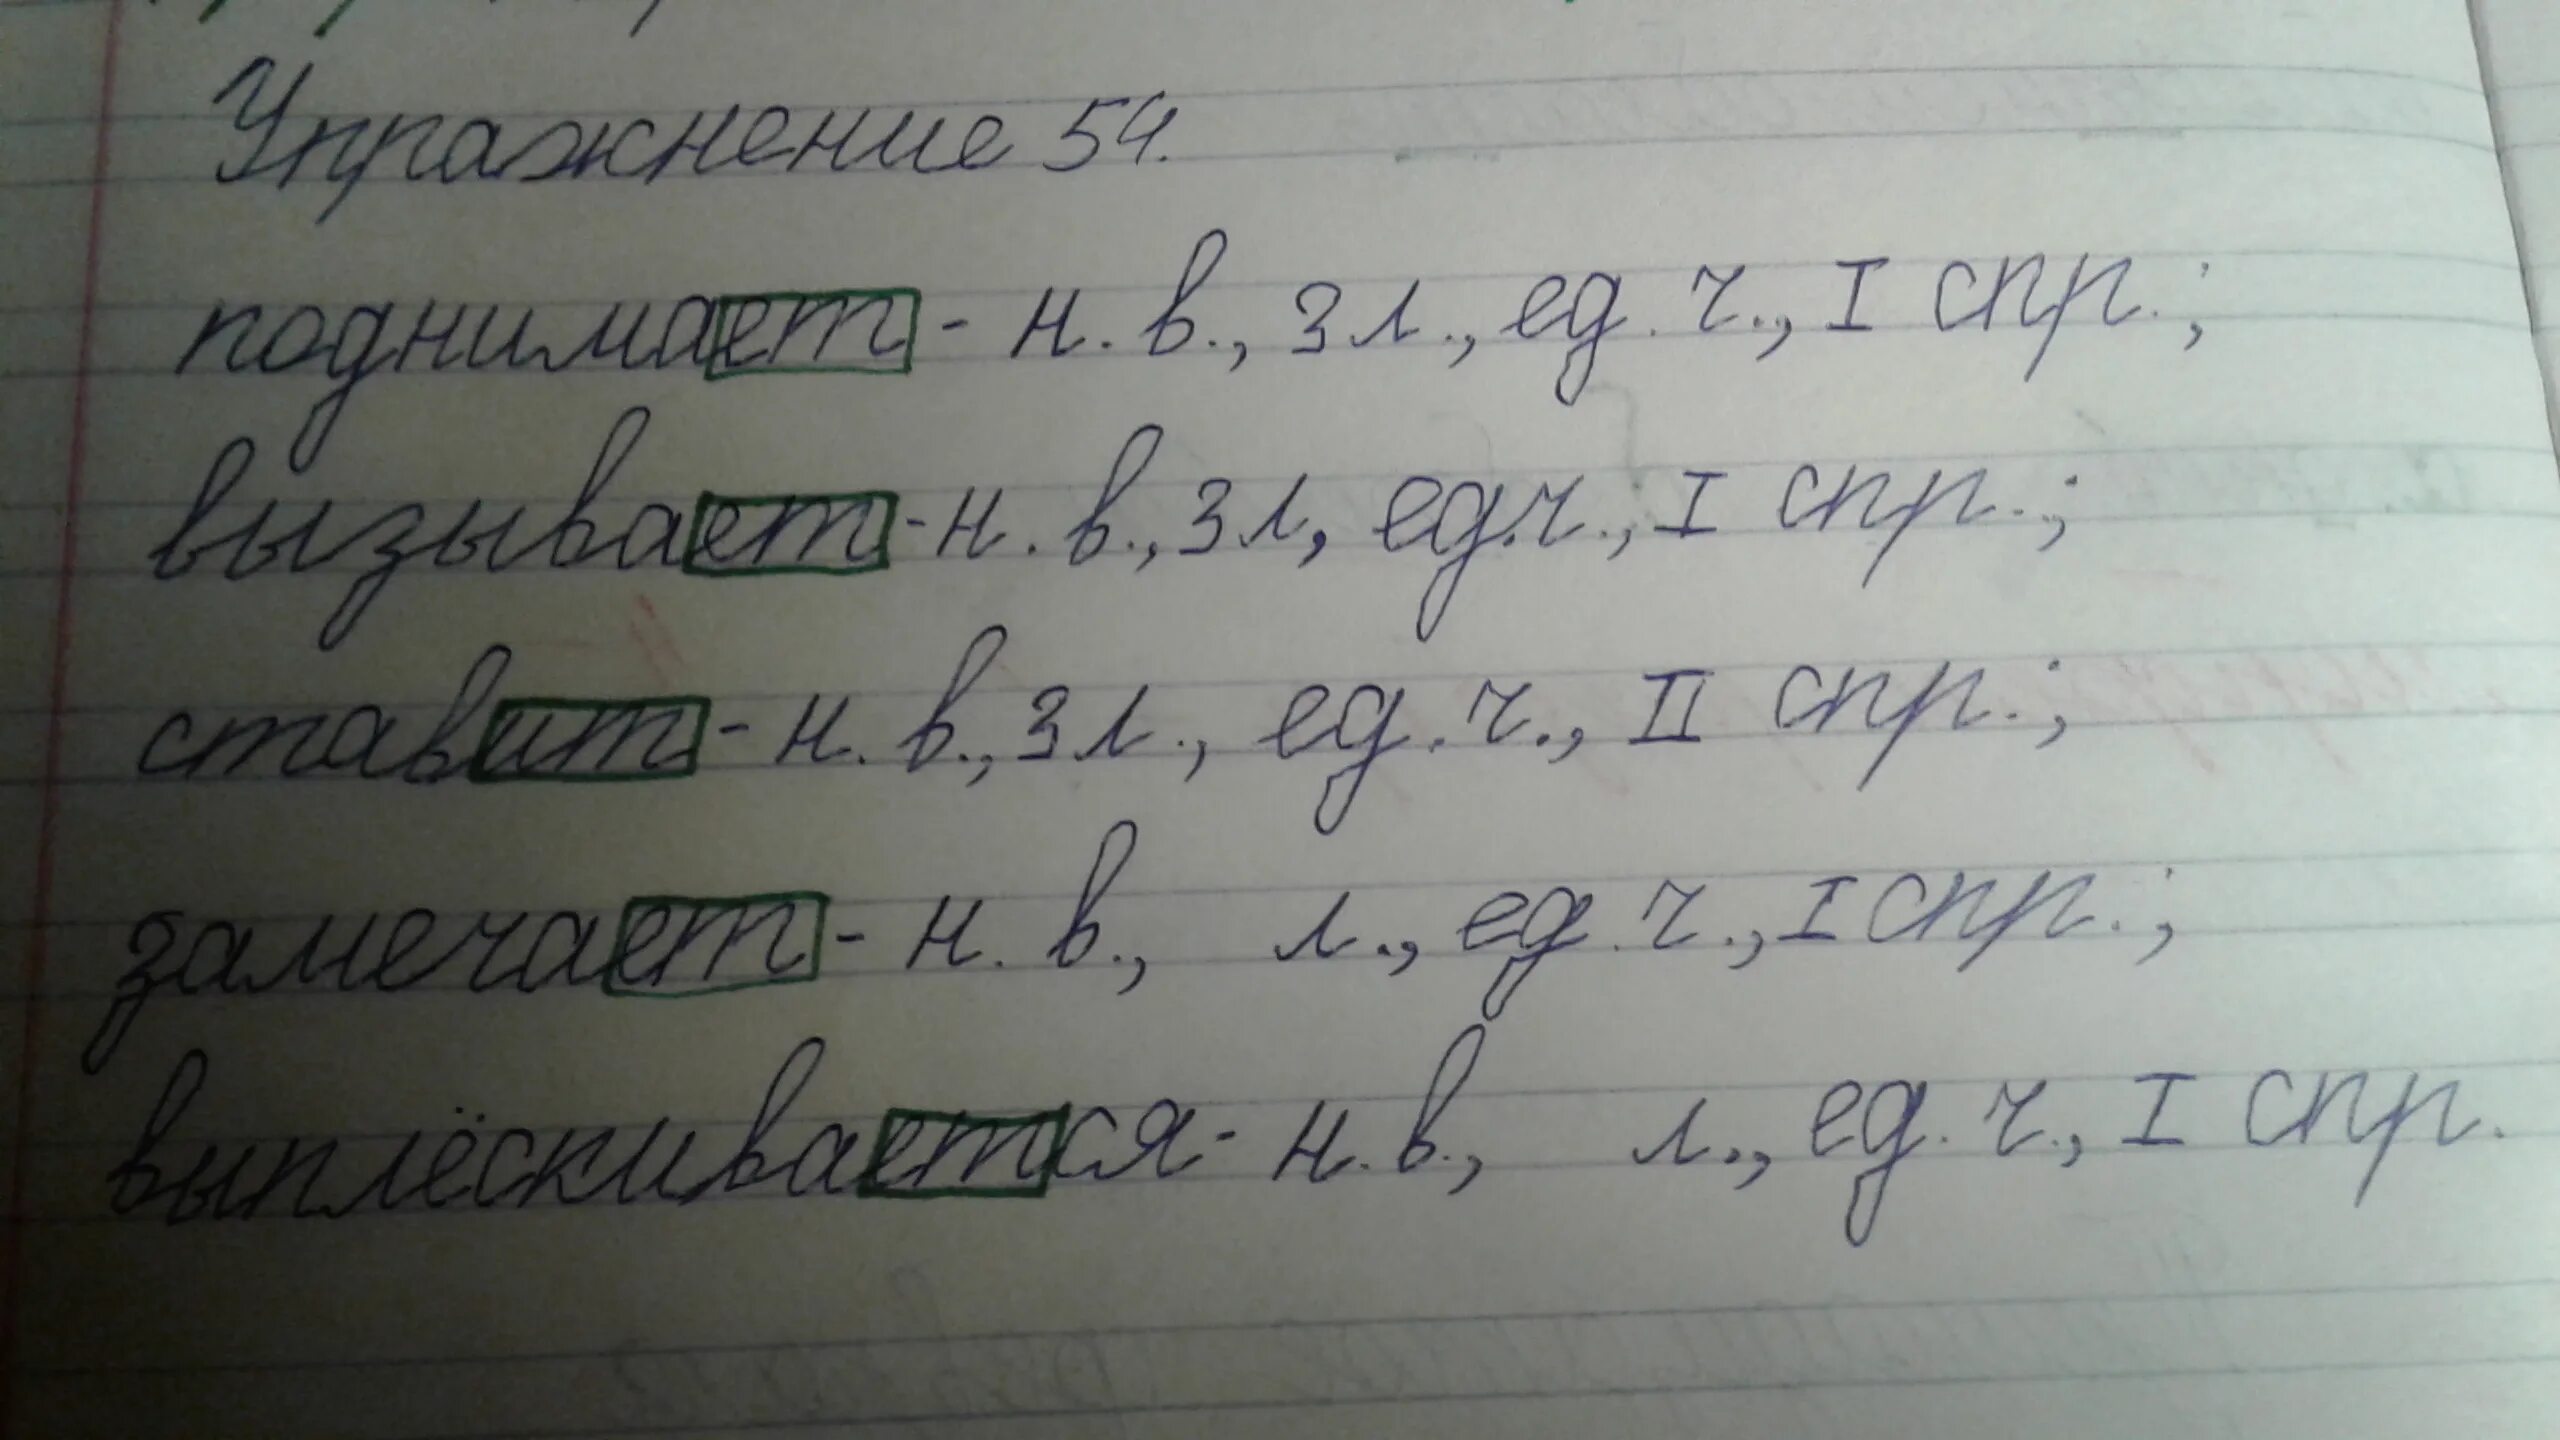 Упражнение 54.
поднимает - н. в., 3 л., ед. ч., I спр.;
вызывает - н. в., 3 л, ед.ч., I спр.;
ставит - н. в., 3 л., ед. ч., II спр.;
замечает - н. в., л., ед. ч., I спр.;
выплёскивается - н. в., л., ед. ч., I спр.